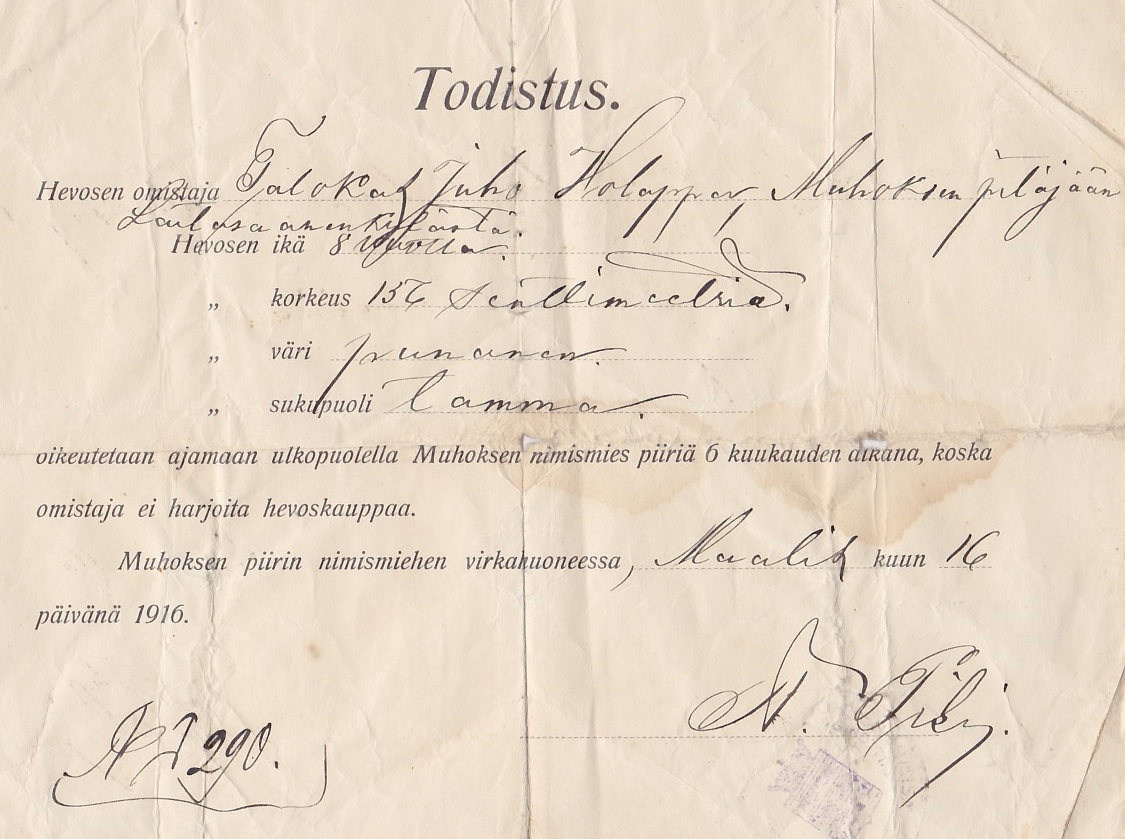 Todistus.
Hevosen omistaja Talokas Juho Holappa, Muhoksen pitäjään
Laitasaarenkylästä.
Hevosen ikä 8 vuotta.
„ korkeus 156 senttimeetriä.
„ väri punanen.
„ sukupuoli tamma.
oikeutetaan ajamaan ulkopuolella Muhoksen nimismies piiriä 6 kuukauden aikana, koska
omistaja ei harjoita hevoskauppaa.
Muhoksen piirin nimismiehen virkahuoneessa, Maalis kuun 16
päivänä 1916.
N.
No 290.